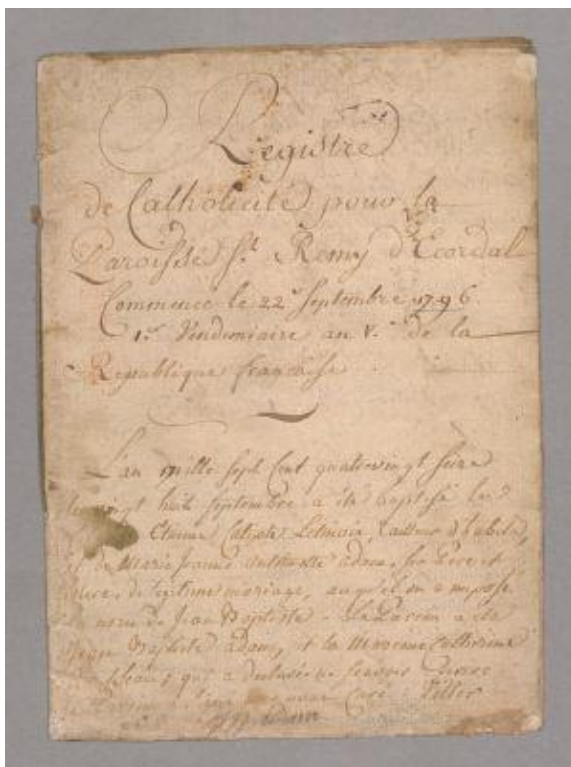 Registre
de Catholicité pour la
Paroisse St. Remy d'Ecordal
Commencé le 22e Septembre 1796
1er Vendemiaire an Ve de la
Republique francoise
L'an mille sept Cent quatrevingt seize
vingt huit septembre a été baptisé
Etienne Calixte tailleur d'habits,
et de Marie Jeanne adam, Père et
mère de legitime mariage, auquel on a imposé
le nom de Jean Baptiste. Le Parein a été
Jean Baptiste adam, et la Mareine Catherine
qui a declaré ne scavoir Ecrire
Curé